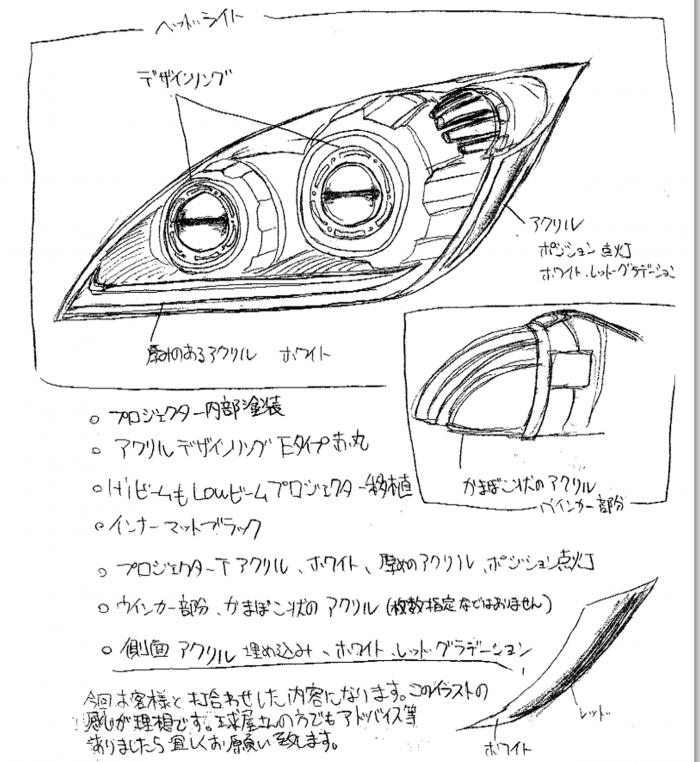 ヘッドライト
デザインリング
アクリル
ポジション点灯
ホワイト、レッドグラデーション
厚みのあるアクリル ホワイト
かまぼこ状のアクリル
ウインカー部分
○ プロジェクター内部塗装
○ アクリルデザインリング Eタイプ
○ Hiビームも Lowビームプロジェクター移植
○ インナーマットブラック
○ プロジェクター下アクリル、ホワイト、厚めのアクリル、ポジション点灯
○ ウインカー部分、かまぼこ状のアクリル(枚数指定などはありません)
○ 側面アクリル埋め込み、ホワイト、レッドグラデーション
レッド
ホワイト
今回お客様と打合わせした内容になります。このイラストの
感じが理想です。球屋さんの方でもアドバイス等
ありましたら宜しくお願い致します。